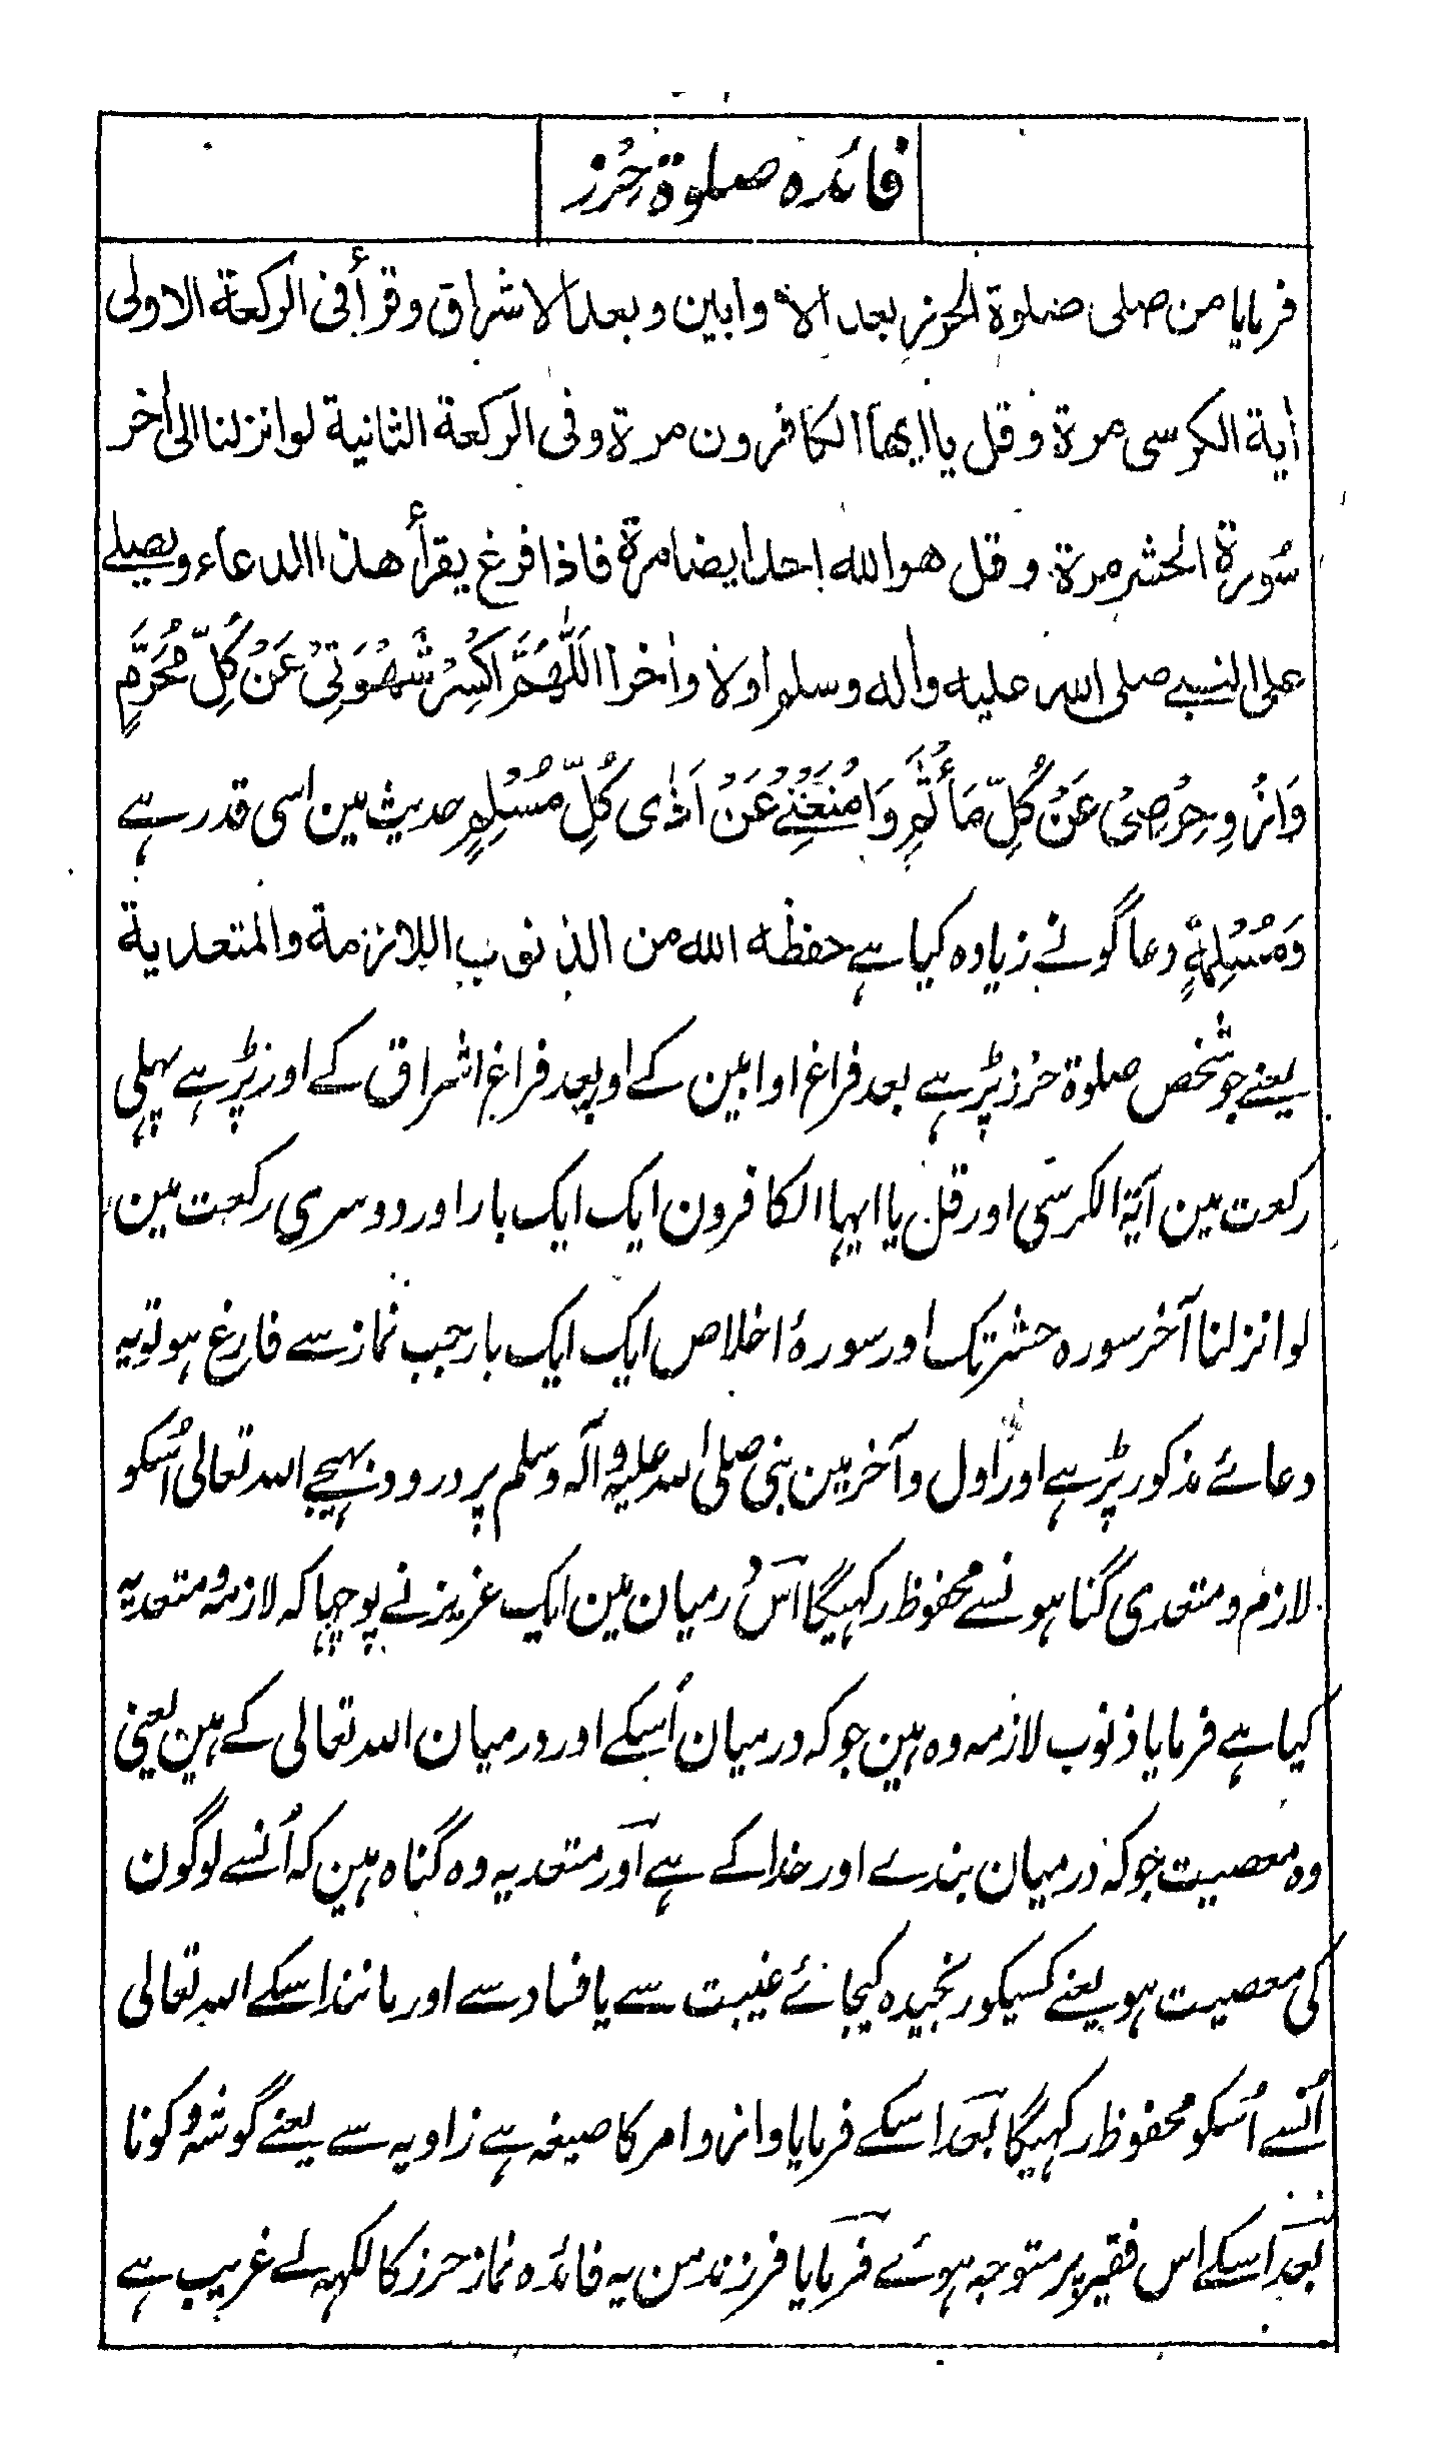 فائدہ صلوۃ حرز
فرمایا من صلی صلوۃ الحرز بعد الاوابین وبعد الاشراق وقرأ فی الرکعۃ الاولی
اٰیۃ الکرسی مرۃ وقل یا ایہا الکافرون مرۃ وفی الرکعۃ الثانیۃ لو انزلنا الی اٰخر
سُورۃ الحشر مرۃ وقل ہو اللہ احد ایضا مرۃ فاذا فرغ یقرأ ہذا الدعاء ویصلے
علی النبے صلی اللہ علیہ واٰلہ وسلم اولا واٰخرا اَللّٰہُمَّ اکْسِرْ شَہْوَتِیْ عَنْ کُلِّ مُحَرَّمٍ
وَازْوِ حِرْصِیْ عَنْ کُلِّ مَأْثَمٍ وَامْنَعْنِے عَنْ اَذٰی کُلِّ مُسْلِمٍ حدیث مین اسی قدر ہے
وَمُسْلِمَۃٍ دعاگو نے زیادہ کیا ہے حفظہ اللہ من الذنوب اللازمۃ والمتعدیۃ
یعنے جو شخص صلوۃ حرز پڑہے بعد فراغ اوابین کے اور بعد فراغ اشراق کے اور پڑہے پہلی
رکعت مین آیۃ الکرسی اور قل یا ایہا الکافرون ایک ایک بار اور دوسری رکعت مین
لو انزلنا آخر سورہ حشر تک اور سورۂ اخلاص ایک ایک بار جب نماز سے فارغ ہو تو یہ
دعائے مذکور پڑہے اور اول و آخر مین نبی صلی اللہ علیہ و آلہ وسلم پر درود بہیجے اللہ تعالی اُسکو
لازم و متعدی گناہونسے محفوظ رکہیگا اس درمیان مین ایک عزیز نے پوچہا کہ لازمہ و متعدیہ
کیا ہے فرمایا ذنوب لازمہ وہ ہین جو کہ درمیان اُسکے اور درمیان اللہ تعالی کے ہین یعنی
وہ معصیت جو کہ درمیان بندے اور خدا کے ہے اور متعدیہ وہ گناہ ہین کہ اُنسے لوگون
کی معصیت ہو یعنے کسیکو رنجیدہ کیجائے غیبت سے یا فساد سے اور مانند اسکے اللہ تعالی
اُنسے اُسکو محفوظ رکہیگا بعد اسکے فرمایا وازو امر کا صیغہ ہے زاویہ سے یعنے گوشہ و کونا
بعد اسکے اس فقیر پر متوجہ ہوئے فرمایا فرزند من یہ فائدہ نماز حرز کا لکہہ لے غریب ہے